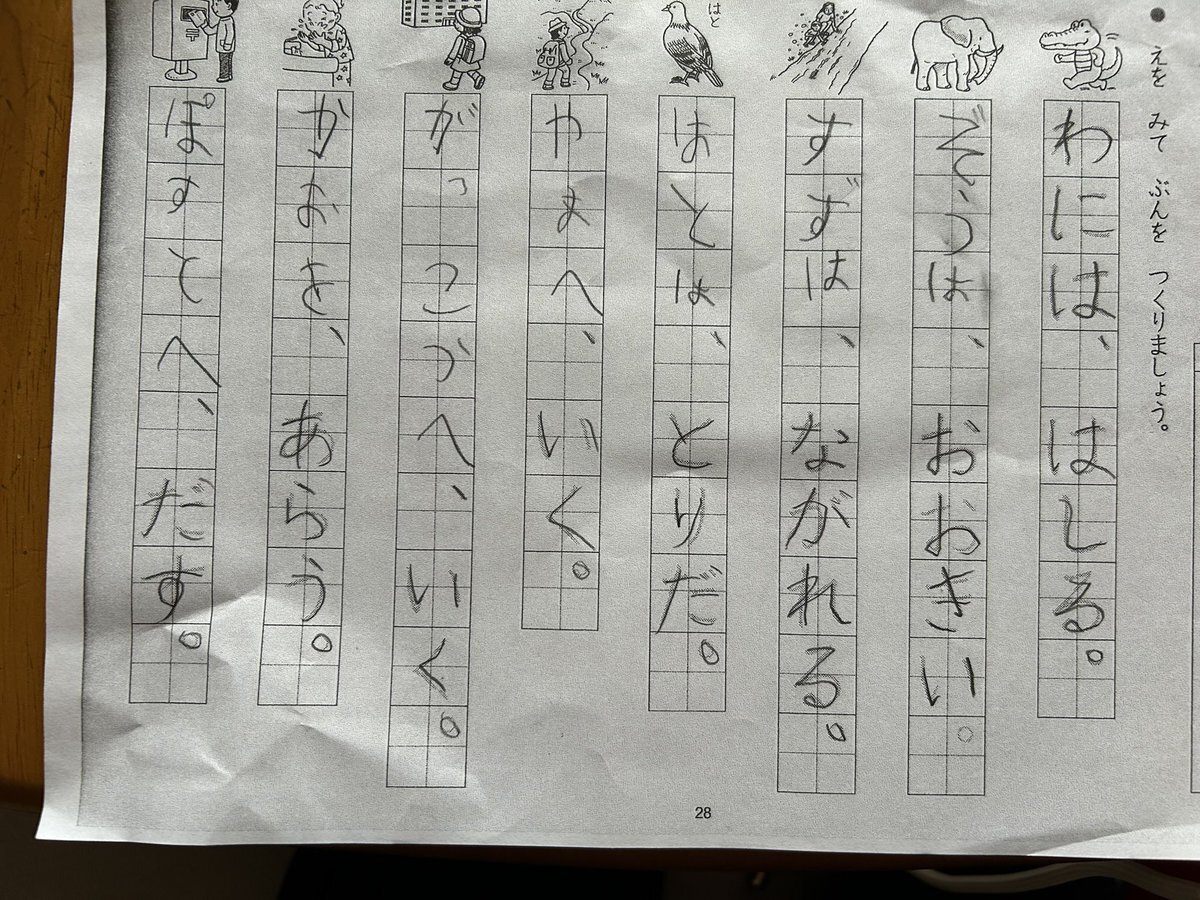 えを みて ぶんを つくりましょう。
わには、はしる。
ぞうは、おおきい。
すずは、ながれる。
はと
はとは、とりだ。
やまへ、いく。
がっこうへ、いく。
かおを、あらう。
ぽすとへ、だす。
28